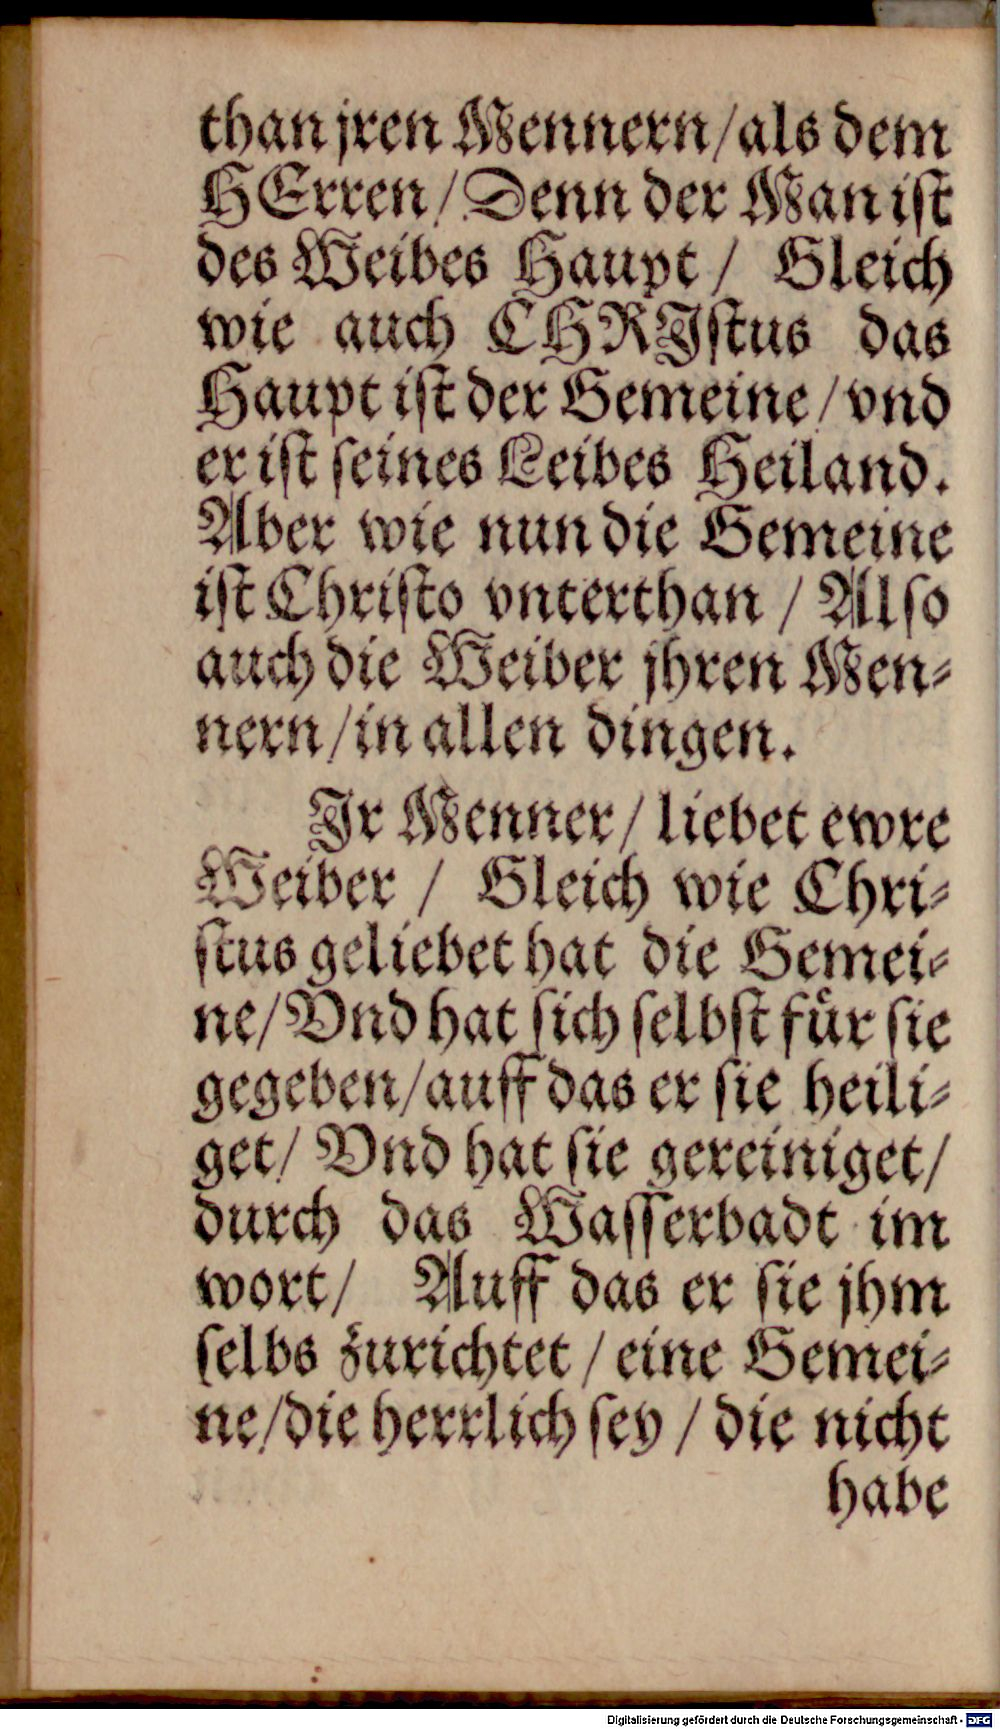 than jren Mennern / als dem
HErren / Denn der Man ist
des Weibes Haupt / Gleich
wie auch CHRJstus das
Haupt ist der Gemeine / vnd
er ist seines Leibes Heiland.
Aber wie nun die Gemeine
ist Christo vnterthan / Also
auch die Weiber jhren Men-
nern / in allen dingen.
Jr Menner / liebet ewre
Weiber / Gleich wie Chri-
stus geliebet hat die Gemei-
ne / Vnd hat sich selbst für sie
gegeben / auff das er sie heili-
get / Vnd hat sie gereiniget /
durch das Wasserbadt im
wort / Auff das er sie jhm
selbs zurichtet / eine Gemei-
ne / die herrlich sey / die nicht
habe
Digitalisierung gefördert durch die Deutsche Forschungsgemeinschaft - DFG